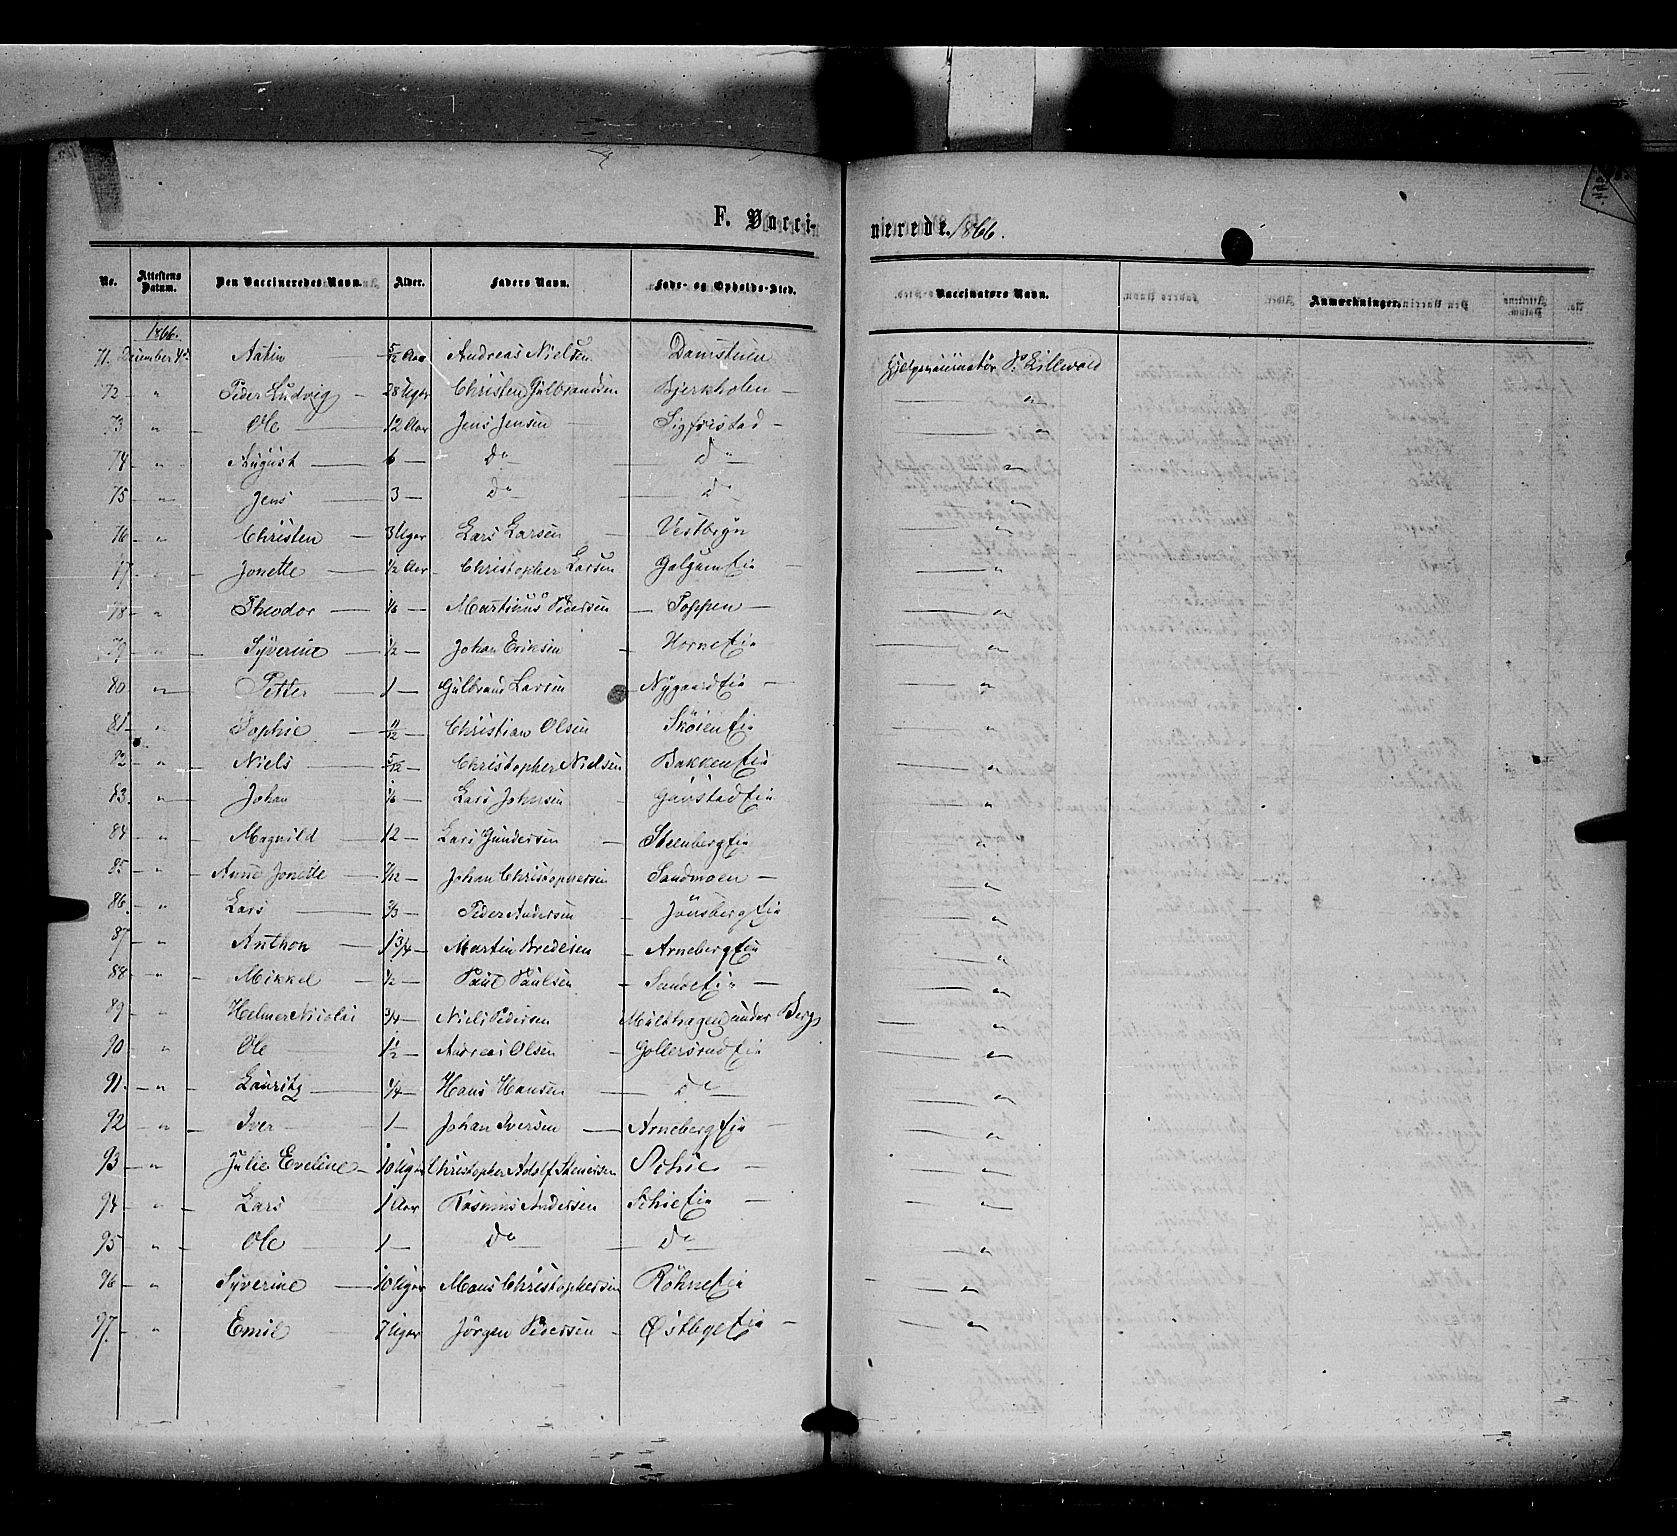 F. Vacci- nerede. 1866.
No. Attestens Datum. Den Vaccineredes Navn. Alder. Faders Navn. Føde- og Opholds-Sted. Vaccinators Navn. Anmærkninger.
1866.
71. December 4de Andreas Nielsen Damstuen Hjelpevaccinatør P. Lillevold
72 — " — Peder Ludvig — 28 Uger Christen Gulbrandsen Bjerkholen — "
73 — " — Ole — 12 Aar Jens Jensen — Sigfrestad — "
74 — " — August — 6 — Do — Do — "
75 — " — Jens — 3 — Do — Do — "
76 — " — Christen — 3 Uger Lars Larsen — Vestbyn — "
77 — " — Jonette — 1/2 Aar — Christopher Larsen Galgumeie — "
78 — " — Theodor — 1/6 — Martinus Pedersen — Toppen — "
79 — " — Syverine — 1/2 — Johan Eriksen — Horneeie — "
80 — " — Petter — 1 — Gulbrand Larsen — Nygaardeie — "
81 — " — Sophie — 11/12 — Christian Olsen — Sköieneie — "
82 — " — Niels — 5/12 — Christopher Nielsen Bakkeneie — "
83. — " — Johan — 1/6 — Lars Johnsen — Gaustadeie — "
84 — " — Magnild — 12 — Lars Gundersen — Steenbergeie — "
85. — " — Anne Jonette 7/12 — Johan Christophersen Sandmoen — "
86. — " — Lars — 2/3 — Peder Andersen — Jönsbergeie — "
87 — " — Anthon — 1 3/4 — Martin Bredesen — Arnebergeie — "
88 — " — Mikkel — 1/2 — Paul Paulsen — Sandeeie — "
89 — " — Helmer Nicolai 3/4 — Niels Pedersen Multhagen under Berg — "
90 — " — Ole — 1 1/2 — Andreas Olsen — Gollersrudeie — "
91. — " — Lauritz — 1/4 — Hans Hansen — Do — "
92 — " — Iver — 1 — Johan Iversen — Arnebergeie — "
93 — " — Julie Eveline — 10 Uger Christopher Adolf Stenersen Schie — "
94 — " — Lars — 1 Aar Rasmus Andersen Schieeie — "
95 — " — Ole — 1 — Do — Do — "
96 — " — Syverine — 10 Uger Mons Christophersen Röhneeie — "
97. — " — Emil — 7 Uger Jörgen Pedersen — Østbyeeie — "